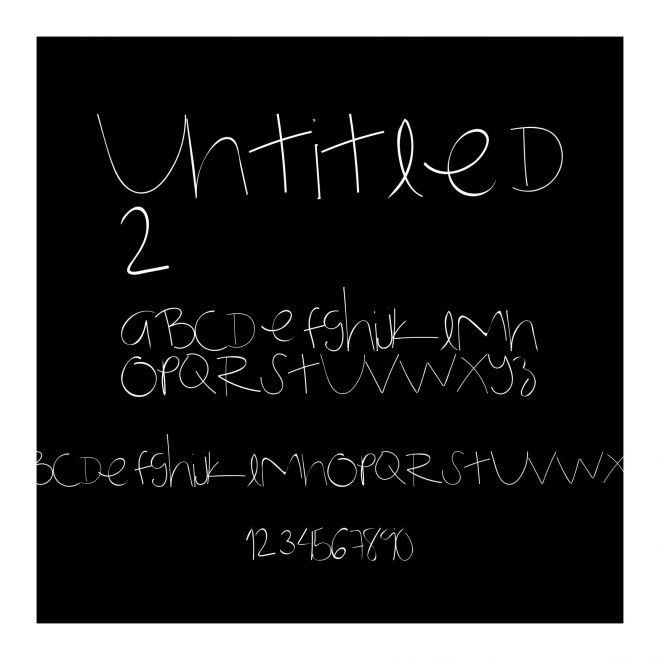 UntitleD
2
aBCDefghijklMn
OPQRStUVWXyz
BCDefghijklMnOPQRStUVWX
1234567890